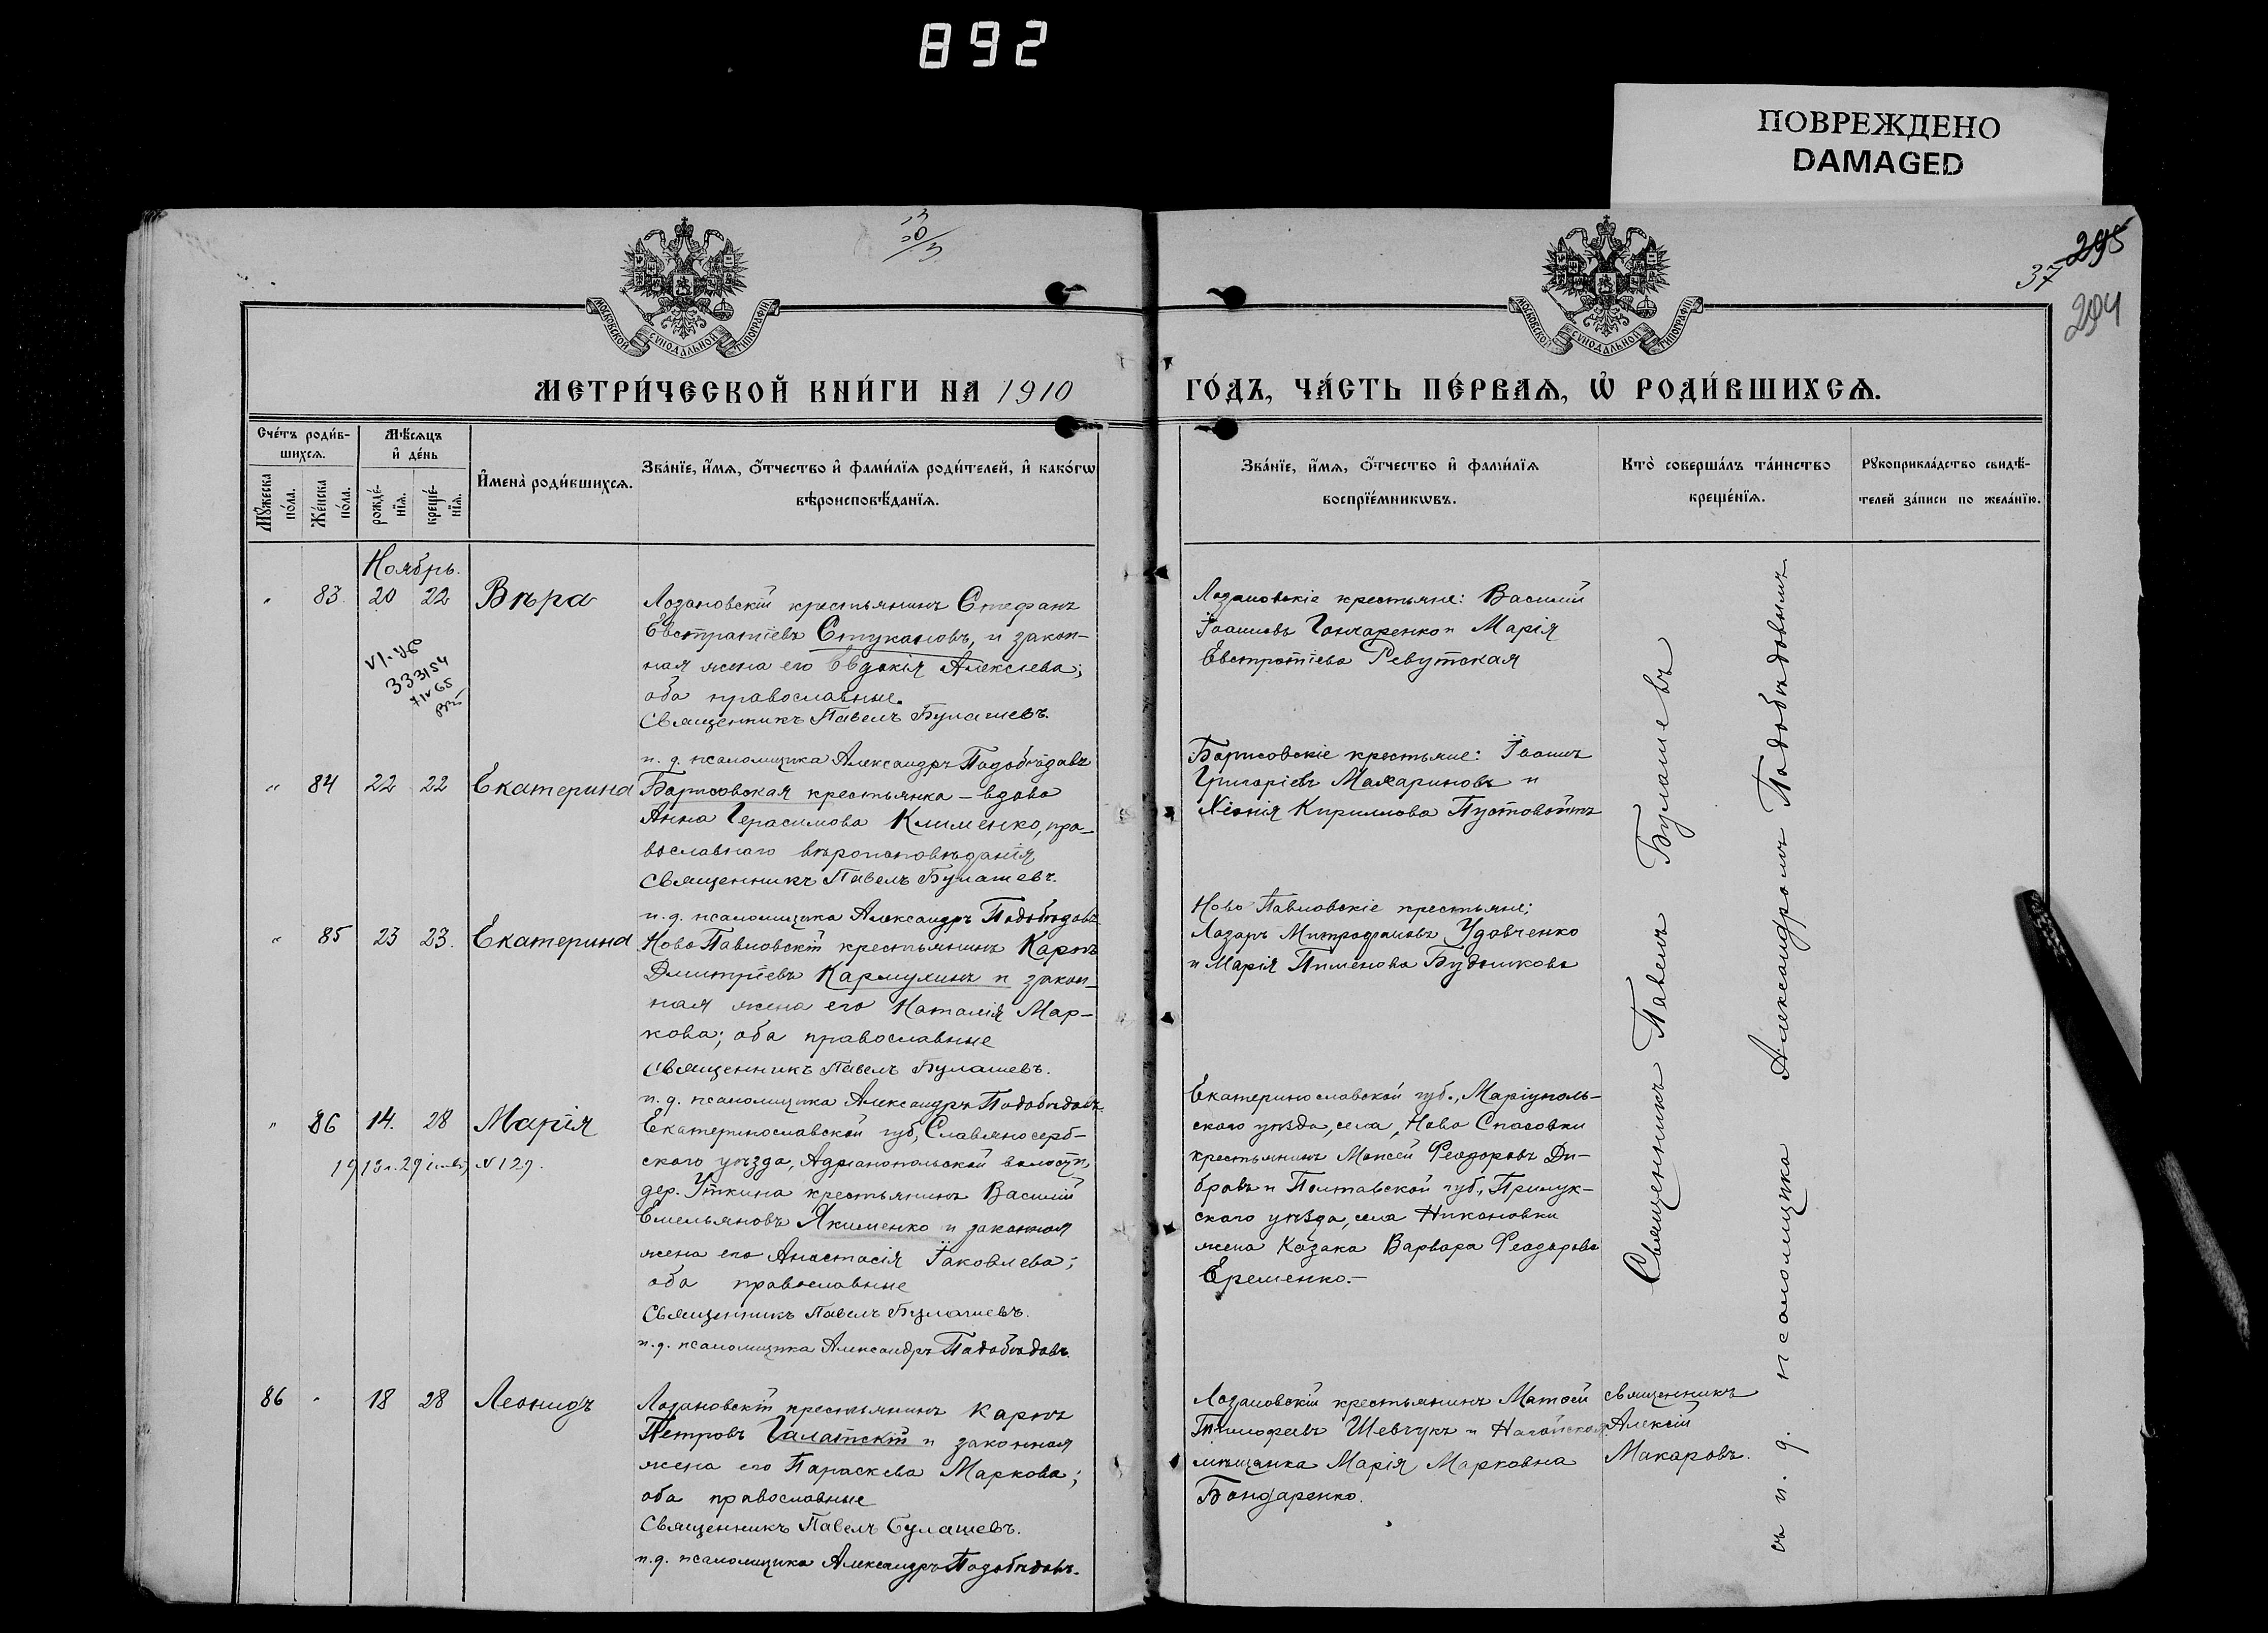 892
ПОВРЕЖДЕНО
DAMAGED
295
37
294
МОСКОВСКОЙ СѴНОДАЛЬНОЙ ТИПОГРАФІИ
МОСКОВСКОЙ СѴНОДАЛЬНОЙ ТИПОГРАФІИ
МЕТРИ́ЧЕСКОЙ КНИ́ГИ НА 1910
ГО́ДЪ, ЧА́СТЬ ПЕ́РВАѦ, Ѽ РОДИ́ВШИХСѦ.
Сче́тъ роди́в-
шихсѧ.
Мꙋ́жеска по́ла.
Же́нска по́ла.
Мѣ́сѧцъ
и҆ де́нь
рожде́-
нїѧ.
креще́-
нїѧ.
И҆мена̀ роди́вшихсѧ.
Зва́нїе, и҆́мѧ, ѻ҆́тчество и҆ фами́лїѧ роди́телей, и҆ како́гѡ
вѣроисповѣ́данїѧ.
Зва́нїе, и҆́мѧ, ѻ҆́тчество и҆ фами́лїѧ
воспрїе́мникѡвъ.
Кто̀ соверша́лъ та́инство
креще́нїѧ.
Рꙋкоприкла́дство свидѣ́-
телей за́писи по жела́нїю.
Ноябрь.
" 83 20 22 Вѣра
Лозановскій крестьянинъ Стефанъ
Евстратіевъ Стукановъ, и закон-
ная жена его Евдокія Алексіева;
оба православные.
Священникъ Павелъ Булашевъ.
и. д. псаломщика Александръ Подобѣдовъ
Лозановскіе крестьяне: Василій
Іоанновъ Гончаренко и Марія
Евстратіева Ревутская
333154
" 84 22 22 Екатерина
Борисовская крестьянка - вдова
Анна Герасимова Клименко, пра-
вославнаго вѣроисповѣданія
Священникъ Павелъ Булашевъ.
и. д. псаломщика Александръ Подобѣдовъ
Борисовскіе крестьяне: Іоаннъ
Григоріевъ Махариновъ и
Хіонія Кириллова Пустовойтъ
" 85 23 23. Екатерина
Ново Павловскій крестьянинъ Карпъ
Дмитріевъ Кармулинъ и закон-
ная жена его Наталія Мар-
кова; оба православные
Священникъ Павелъ Булашевъ.
и. д. псаломщика Александръ Подобѣдовъ.
Ново Павловскіе крестьяне;
Лазарь Митрофановъ Удовченко
и Марія Пименова Будникова
" 86 14. 28 Марія
1913 г. 29 N 129.
Екатеринославской губ., Славяносерб-
скаго уѣзда, Адріанопольской волости,
дер. Уткина крестьянинъ Василій
Емельяновъ Якименко и законная
жена его Анастасія Іаковлева;
оба православные
Священникъ Павелъ Булашевъ.
и. д. псаломщика Александръ Подобѣдовъ.
Екатеринославской губ., Маріуполь-
скаго уѣзда, села, Ново Спасовки
крестьянинъ Моисей Феодоровъ Ди-
бровъ и Полтавской губ., Прилук-
скаго уѣзда, села Никоновки
жена Казака Варвара Феодорова
Еременко.-
86 " 18 28 Леонидъ
Лозановскій крестьянинъ Карпъ
Петровъ Галатскій и законная
жена его Параскева Маркова;
оба православные
Священникъ Павелъ Булашевъ.
и. д. псаломщика Александръ Подобѣдовъ.
Лозановскій крестьянинъ Матвей
Тимофеевъ Шевчукъ и Ногайская
мѣщанка Марія Марковна
Бондаренко.
священникъ
Алексій
Макаровъ.
Священникъ Павелъ Булашевъ
съ и. д. псаломщика Александромъ Подобѣдовымъ